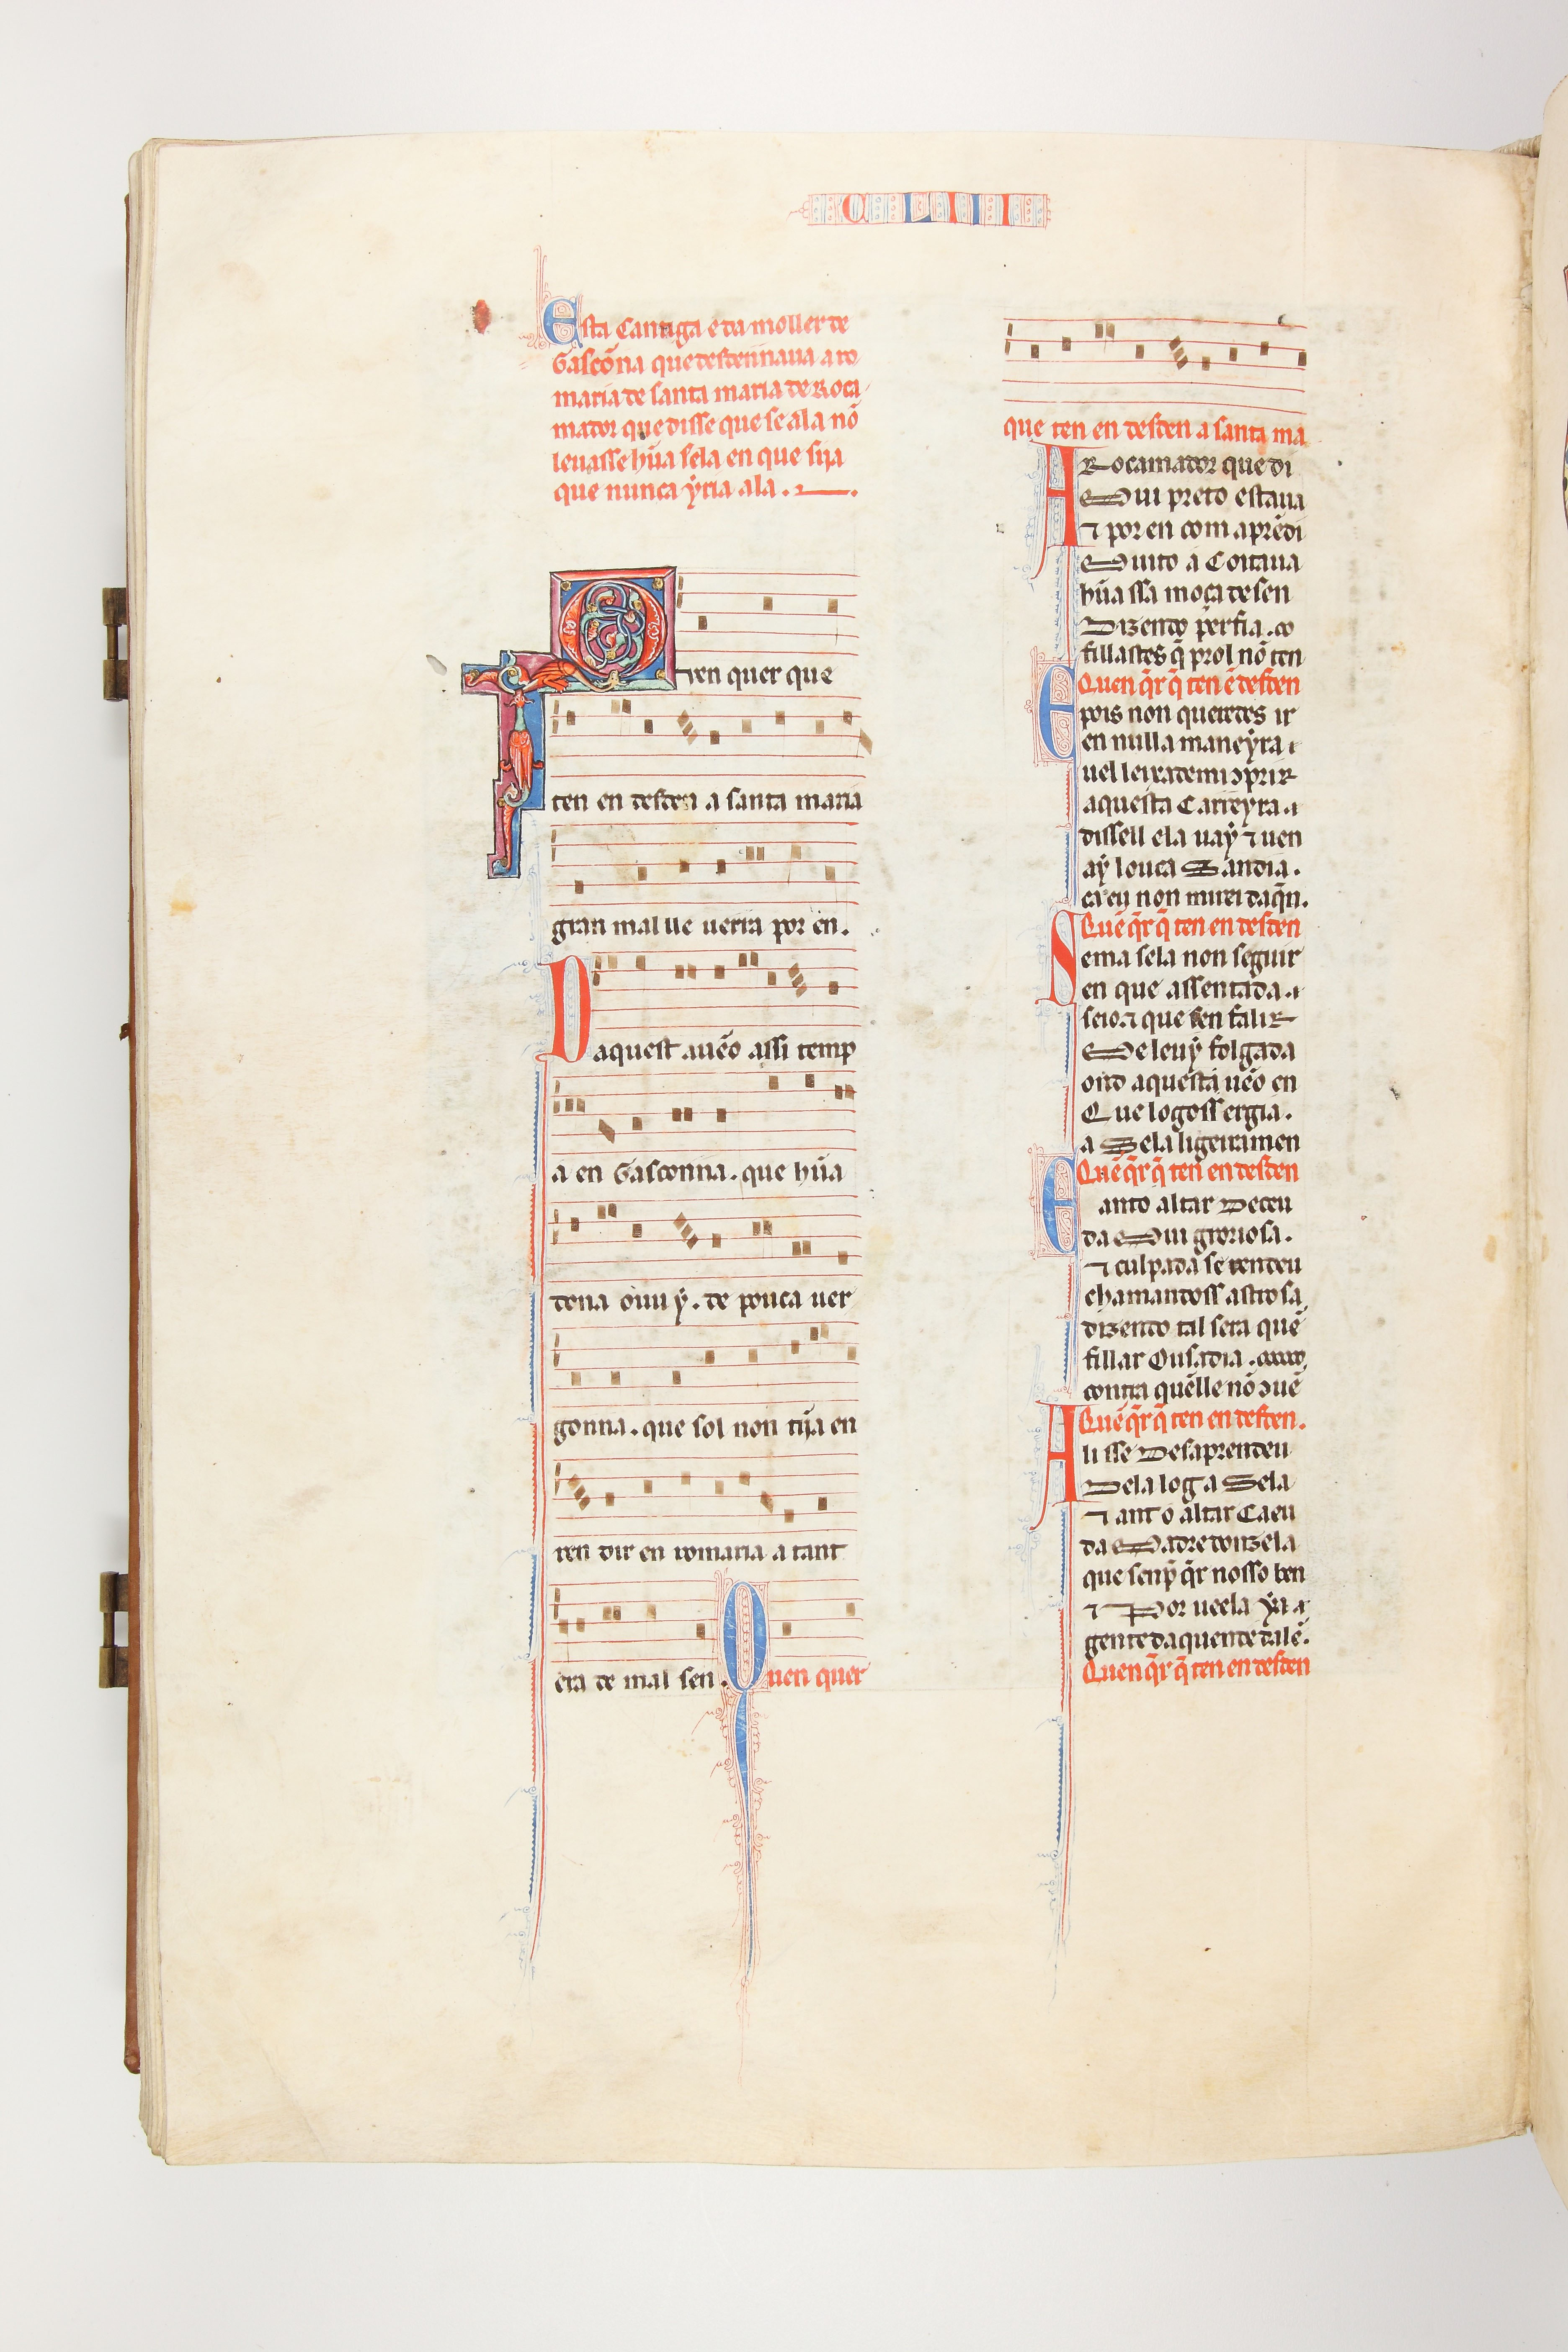 CLIII
Esta Cantiga e da moller de
Gascõna que desdennaua a ro
maria de santa maria de Roca
mador que disse que se ala nõ
leuasse hũa sela en que sija
que nunca ẏria ala.
Quen quer que
ten en desden a santa maria
gran mal lle uerra por en.
Daquest auẽo assi temp
a en Gasconna. que hũa
dona ouu ẏ. de pouca uer
gonna. que sol non tija en
ren dir en romaria a tant
era de mal sen. Quen quer
que ten en desden a santa ma
A Rocamador que di
Mui preto estaua
⁊ por en com aprẽdi
Muito a Coitaua
hũa ssa moça de sen
Dizendo perfia. co
fillastes q̃ prol nõ ten
Quen q̃r q̃ ten ẽ desden
E pois non queredes ir
en nulla maneẏra
aquesta Carreẏra
dissell ela uaẏ ⁊ uen
aẏ louca Sandia.
ca eu non mirei daq̃n.
Quẽ q̃r q̃ ten en desden
Se m a sela non seguir
en que assentada
seio ⁊ que sen falir
Me leuẏ folgada
ond aquesta uẽo en
Que logoss ergia.
a Sela ligeiramen
Quẽ q̃r q̃ ten en desden
E anto altar Deceu
da Mui grorosa.
⁊ culpada se rendeu
chamandoss astrosa
dizendo tal sera quẽ
fillar Ousadia.
contra quẽlle nõ ↄuẽ
Quẽ q̃r q̃ ten en desden.
A li sse Desaprendeu
Dela log a Sela
⁊ ant o altar Caeu
da Madre donzela
que senp̃ q̃r nosso ben
⁊ Por ueela ẏa a
gente daquende dalẽ.
Quen q̃r q̃ ten en desden